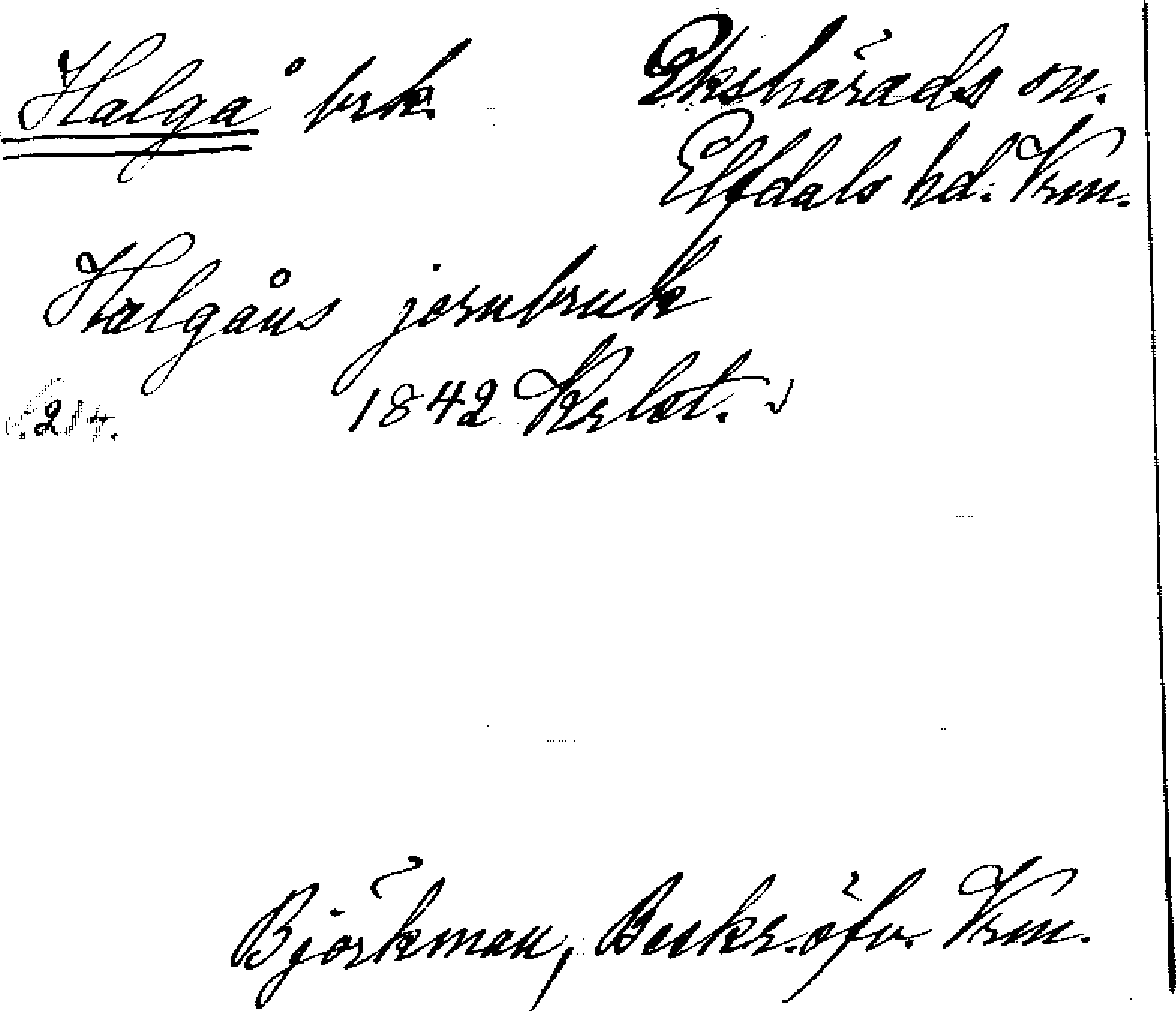 Halgå brk. Ekshärads sn.
Elfdals hd. Vrm.
Halgåns jernbruk
1842 Krlot.
Björkman, Beskr. öfv. Vrm.